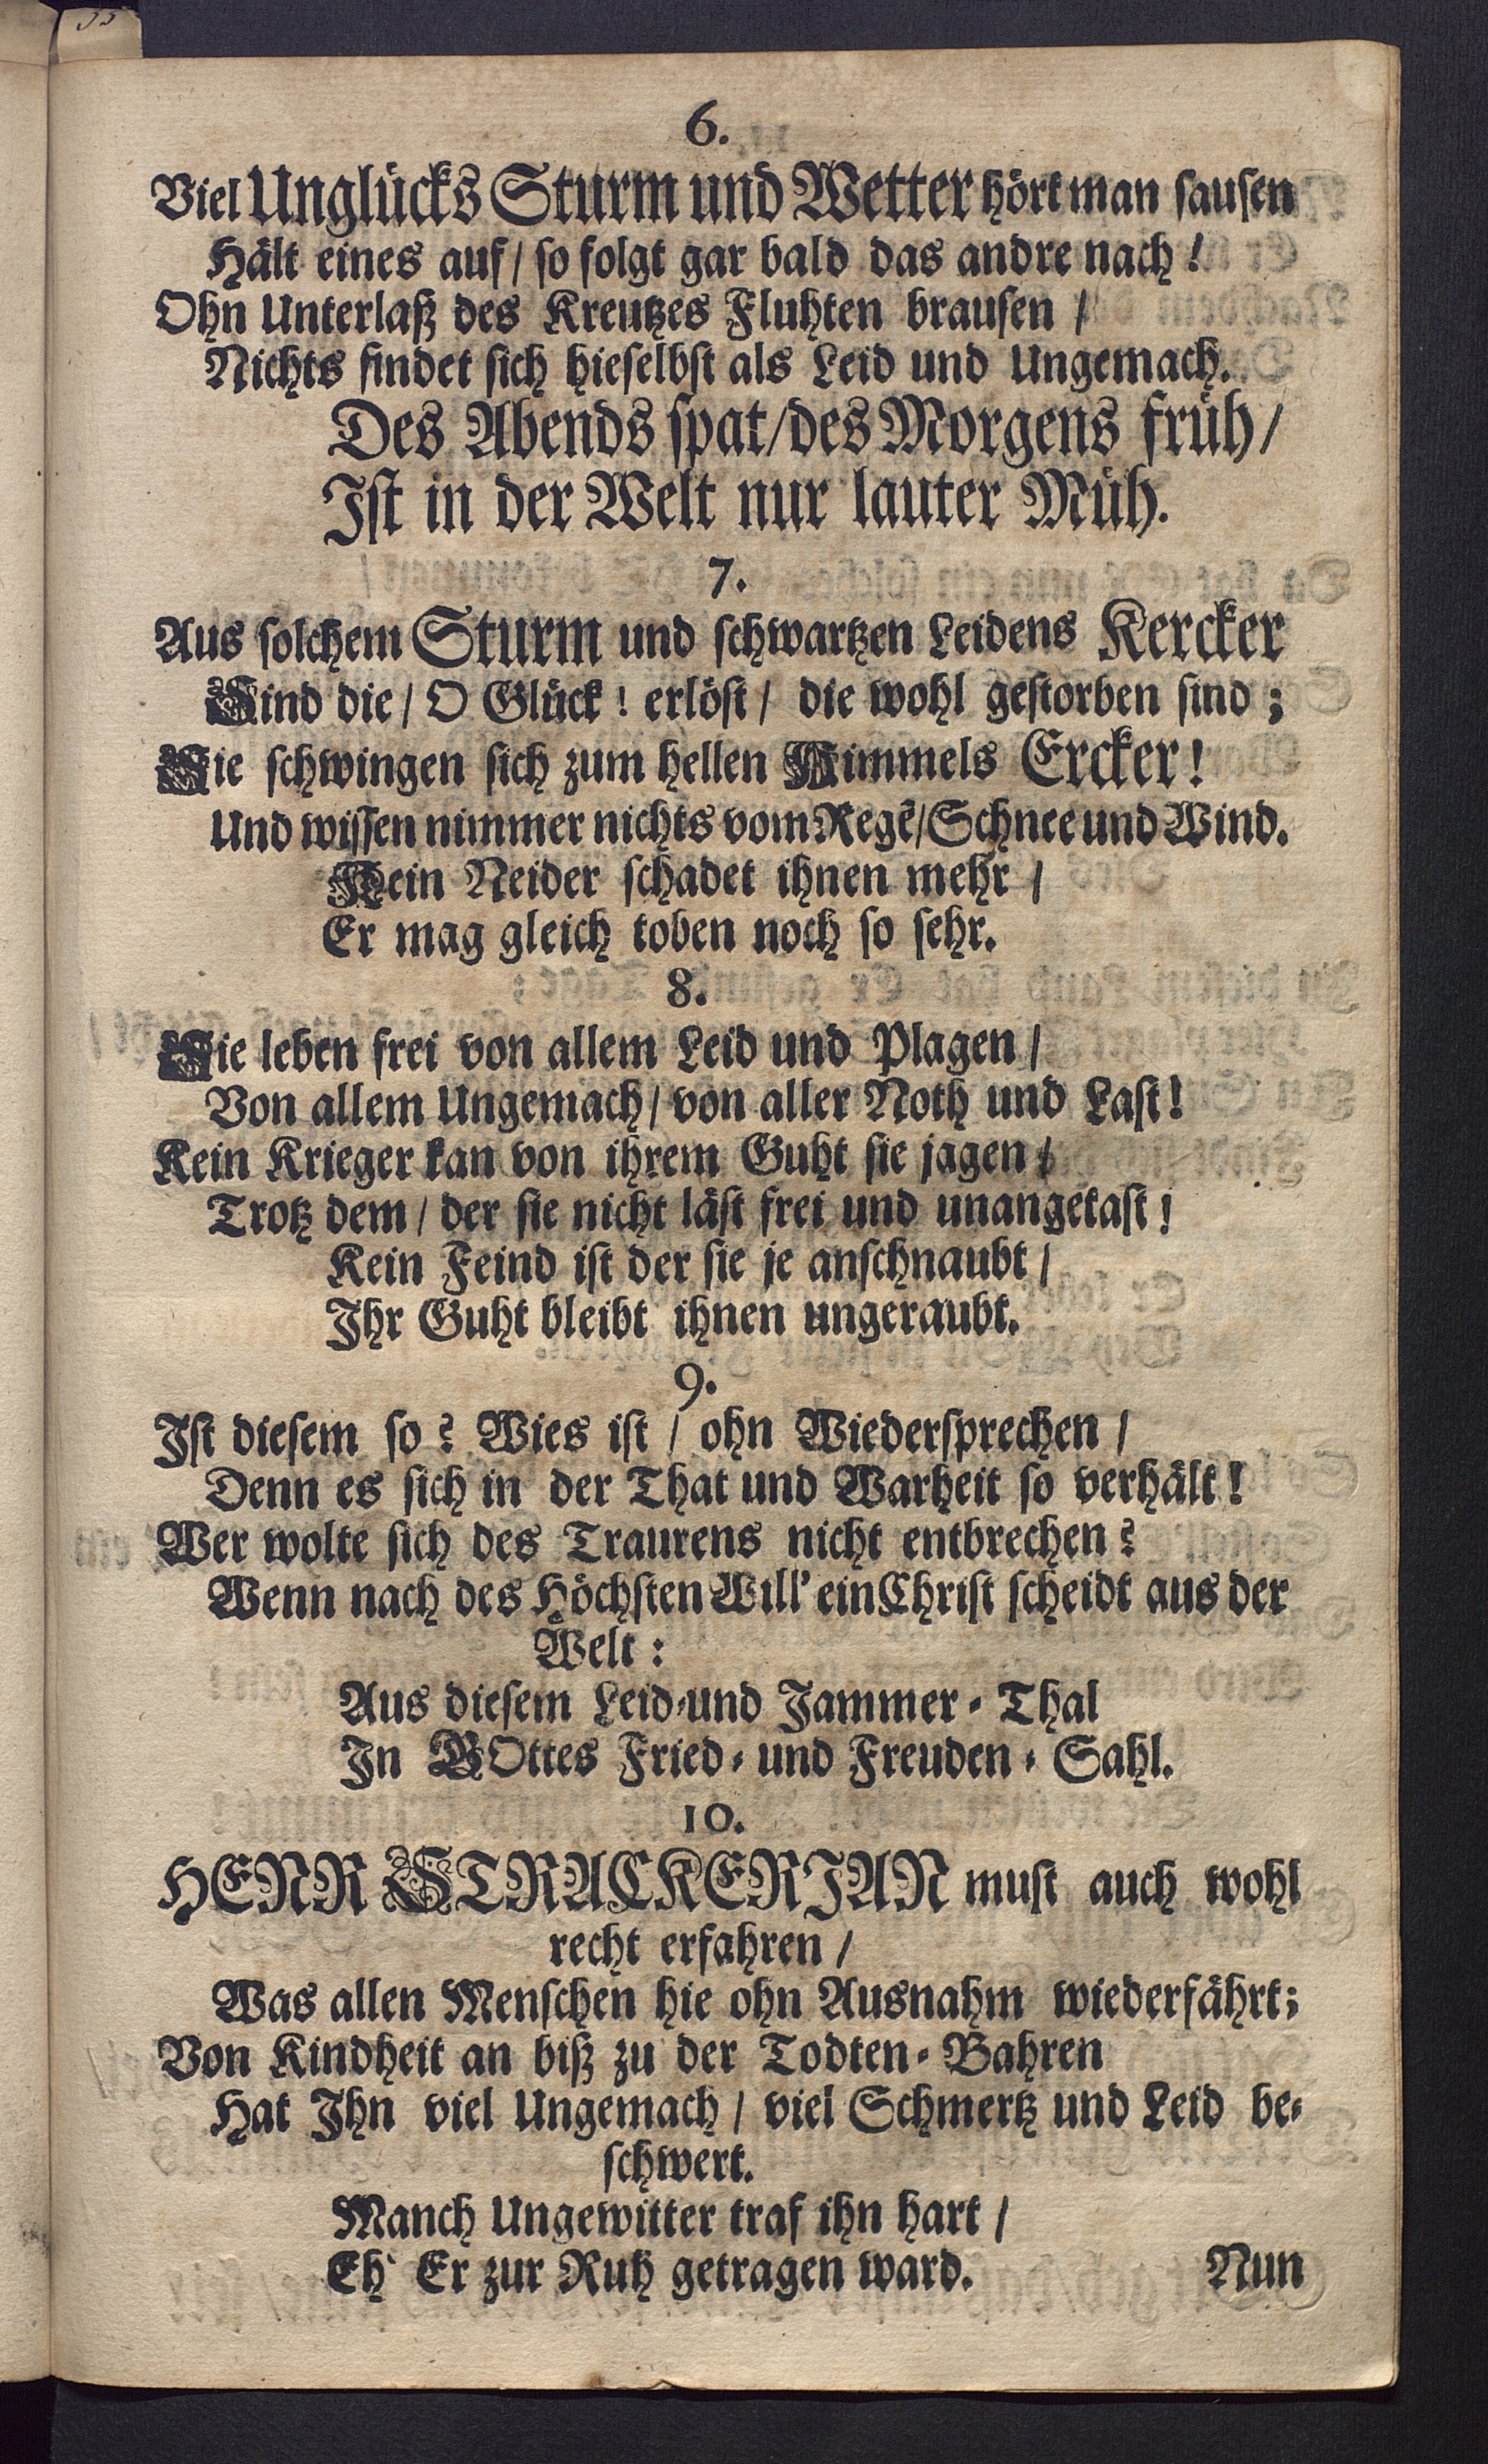 6.
Viel Unglücks Sturm und Wetter hört man sausen
Hält eines auf / so folgt gar bald das andre nach!
Ohn Unterlaß des Kreutzes Fluhten brausen /
Nichts findet sich hieselbst als Leid und Ungemach.
Des Abends spat / des Morgens früh /
Ist in der Welt nur lauter Müh.
7.
Aus solchem Sturm und schwartzen Leidens Kercker
Sind die / O Glück! erlöst / die wohl gestorben sind;
Sie schwingen sich zum hellen Himmels Ercker!
Und wissen nimmer nichts vom Regẽ / Schnee und Wind.
Kein Neider schadet ihnen mehr /
Er mag gleich toben noch so sehr.
8.
Sie leben frei von allem Leid und Plagen /
Von allem Ungemach / von aller Noth und Last!
Kein Krieger kan von ihrem Guht sie jagen /
Trotz dem / der sie nicht läst frei und unangetast!
Kein Feind ist der sie je anschnaubt /
Ihr Guht bleibt ihnen ungeraubt.
9.
Ist diesem so? Wies ist / ohn Wiedersprechen /
Denn es sich in der That und Warheit so verhält!
Wer wolte sich des Traurens nicht entbrechen?
Wenn nach des Höchsten Will' ein Christ scheidt aus der
Welt:
Aus diesem Leid-und Jammer-Thal
In GOttes Fried-und Freuden-Sahl.
10.
HERR STRACKERJAN must auch wohl
recht erfahren /
Was allen Menschen hie ohn Ausnahm wiederfährt;
Von Kindheit an biß zu der Todten-Bahren
Hat Ihn viel Ungemach / viel Schmertz und Leid be-
schwert.
Manch Ungewitter traf ihn hart /
Eh' Er zur Ruh getragen ward.
Nun